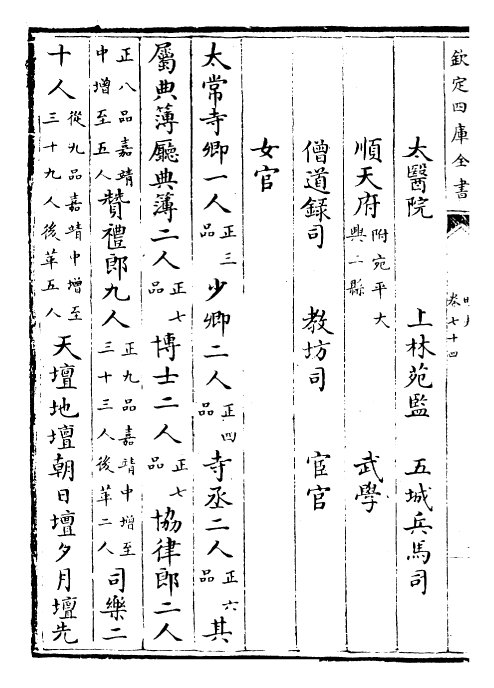 欽定四庫全書
明史
卷七十四
太醫院 上林苑監 五城兵馬司
順天府附宛平大興二縣 武學
僧道録司 教坊司 宦官
女官
太常寺卿一人正三品少卿二人正四品寺丞二人正六品其
屬典簿廳典簿二人正七品博士二人正七品協律郎二人
正八品嘉靖中增至五人贊禮郎九人正九品嘉靖中增至三十三人後革二人司樂二
十人從九品嘉靖中增至三十九人後革五人天壇地壇朝日壇夕月壇先